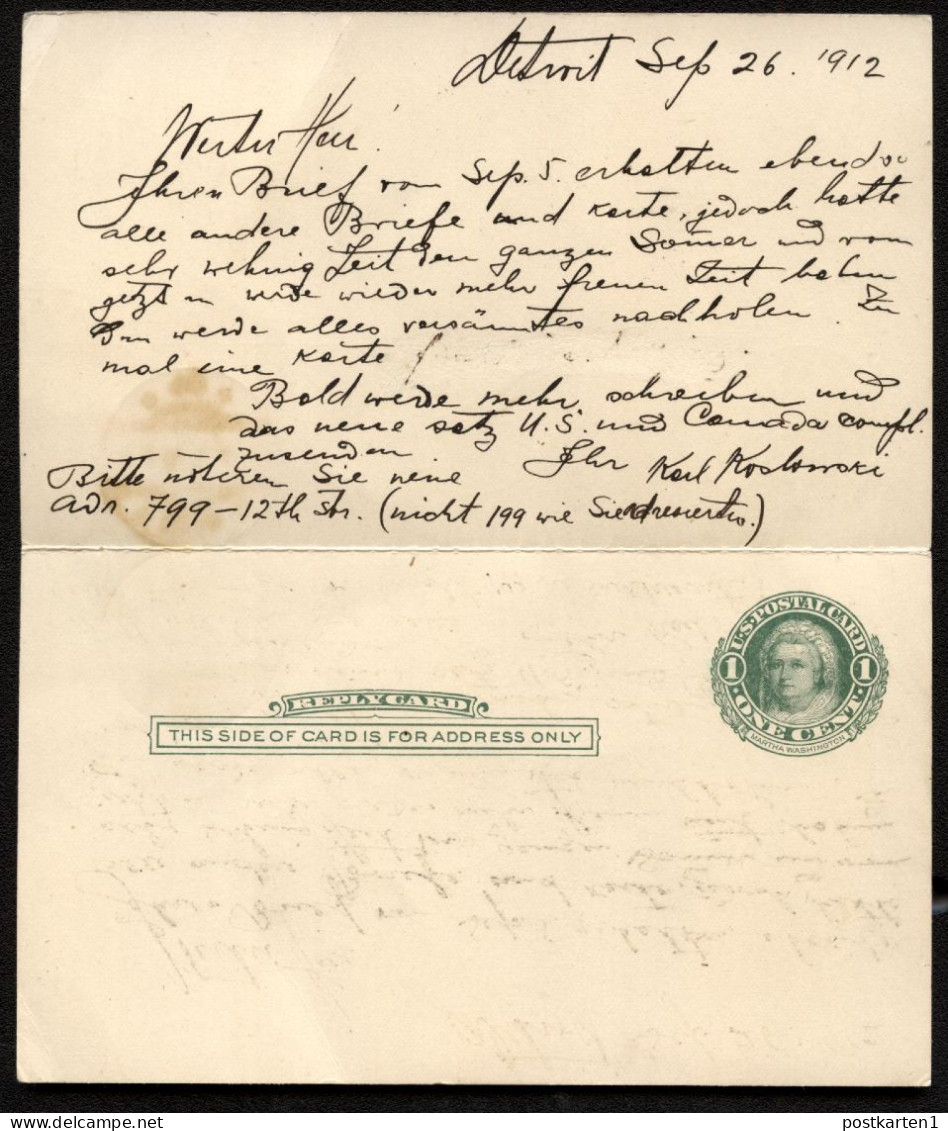 Detroit Sep 26. 1912
Werter Herr!
Ihren Brief vom Sep. 5. erhalten ebenso
alle andere Briefe und Karte, jedoch hatte
sehr wehnig Zeit den ganzen Somer und vom
jetzt an werde wieder mehr freuen Zeit haben
Ihn werde alles versäumtes nachholen. Zu
mal eine Karte
Bald werde mehr schreiben und
das neue satz U.S. und Canada compl.
zusenden
Ihr Karl Koslowski
Bitte nöteren Sie neue
adr. 799-12th Str. (nicht 199 wie Sie)
REPLY CARD
THIS SIDE OF CARD IS FOR ADDRESS ONLY
U·S·POSTAL CARD
1 1
·ONE CENT·
MARTHA WASHINGTON
postkarten1